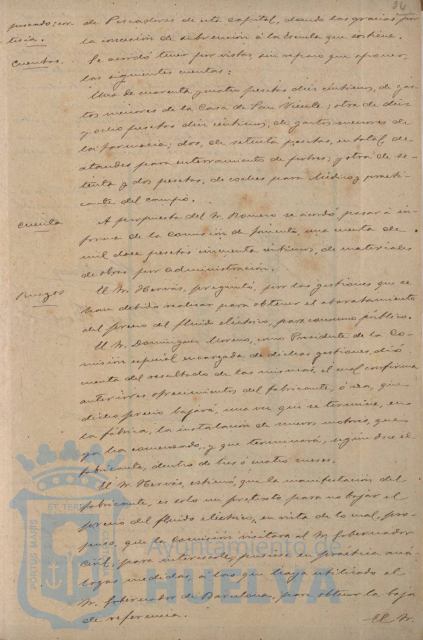 de Pescadores de esta Capital, dando las gracias por
tesia. la concesión de subvención á la Escuela que sostiene.
Cuentas. Se acordó tener por vistas, sin reparo que oponer,
las siguientes cuentas:
Una de cuarenta y cuatro pesetas diez céntimos, de gas-
tos menores de la Casa de San Vicente; otra de diez
y ocho pesetas diez céntimos, de gastos menores de
la farmacia; dos, de setenta pesetas, en total, de
ataudes para enterramiento de pobres; y otra de se-
tenta y dos pesetas, de coches para Médico y practi-
cante del campo.
Cuenta A propuesta del Sr. Romero se acordó pasar á in-
forme de la Comisión de fomento, una cuenta de
mil doce pesetas cincuenta céntimos, de materiales
de obras por administración.
Ruegos El Sr. Hervás, preguntó, por las gestiones que se
han debido realizar para obtener el abaratamiento
del precio del fluido eléctrico, para consumo público.
El Sr. Dominguez Moreno, como Presidente de la Co-
misión especial encargada de dichas gestiones, dió
cuenta del resultado de las mismas, el cual confirma
anteriores ofrecimientos del fabricante, ó sea, que
dicho precio bajará, una vez que se termine, en
la fábrica, la instalación de nuevos motores, que
ya ha comenzado, y que terminará, según dice el
fabricante, dentro de tres ó cuatro meses.
El Sr. Hervás, estimó, que la manifestación del
fabricante, es solo un pretexto para no bajar el
precio del fluido eléctrico, en vista de lo cual, pro-
puso, que la Comisión visitara al Sr. Gobernador
Civil, para interesarle, pusiera en práctica aná-
logas medidas, á las que haya utilizado el
Sr. Gobernador de Barcelona, para obtener la baja
de referencia.
El Sr.
PORTUS MARIS ET TERRÆ
Ayuntamiento de
HUELVA